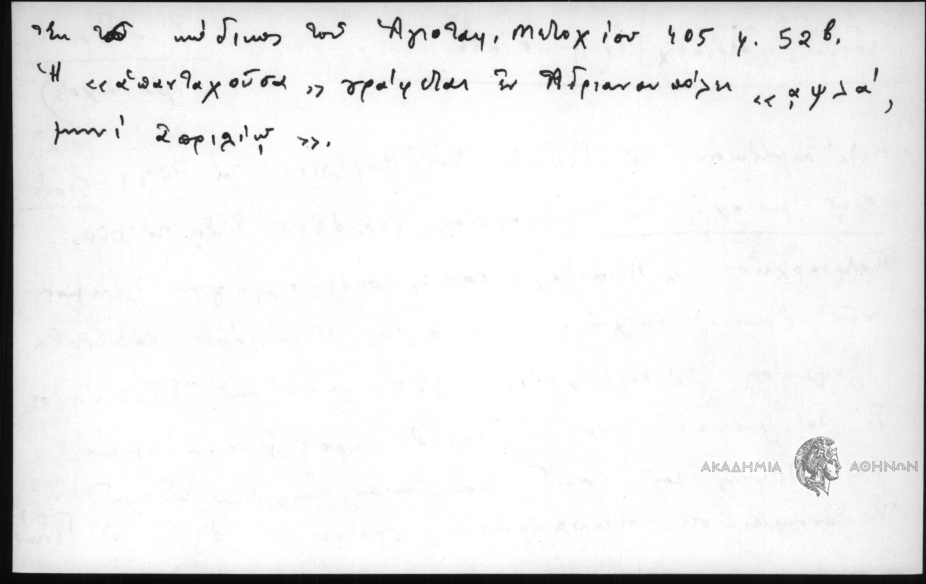 Ἐκ τοῦ κώδικος τοῦ Ἁγιοταφ. Μετοχίου 405 φ. 52β.
Ἡ «ἀπανταχοῦσα» γράφεται ἐν Ἀδριανουπόλει «͵αψλα΄,
μηνὶ ἀπριλίῳ».
ΑΚΑΔΗΜΙΑ ΑΘΗΝΩΝ